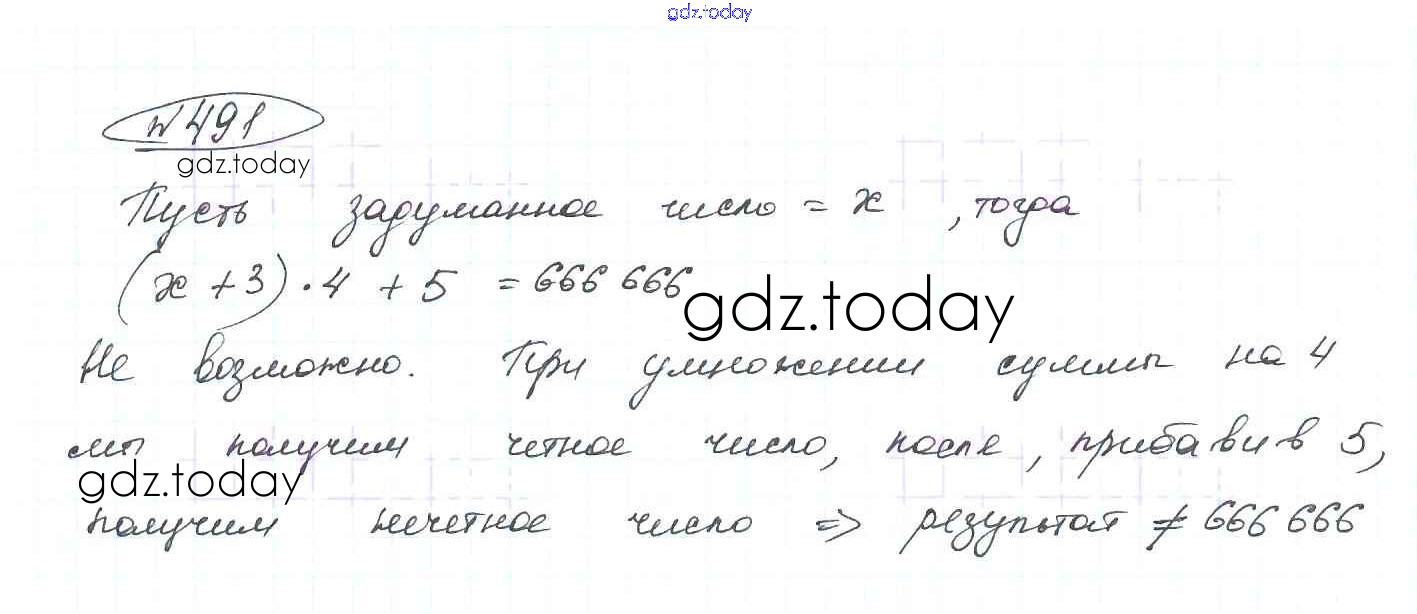 gdz.today
№ 491
gdz.today
Пусть задуманное число = x , тогда
(x + 3) · 4 + 5 = 666 666
gdz.today
Не возможно. При умножении суммы на 4
мы получим четное число, после, прибавив 5,
gdz.today
получим нечетное число => результат ≠ 666 666